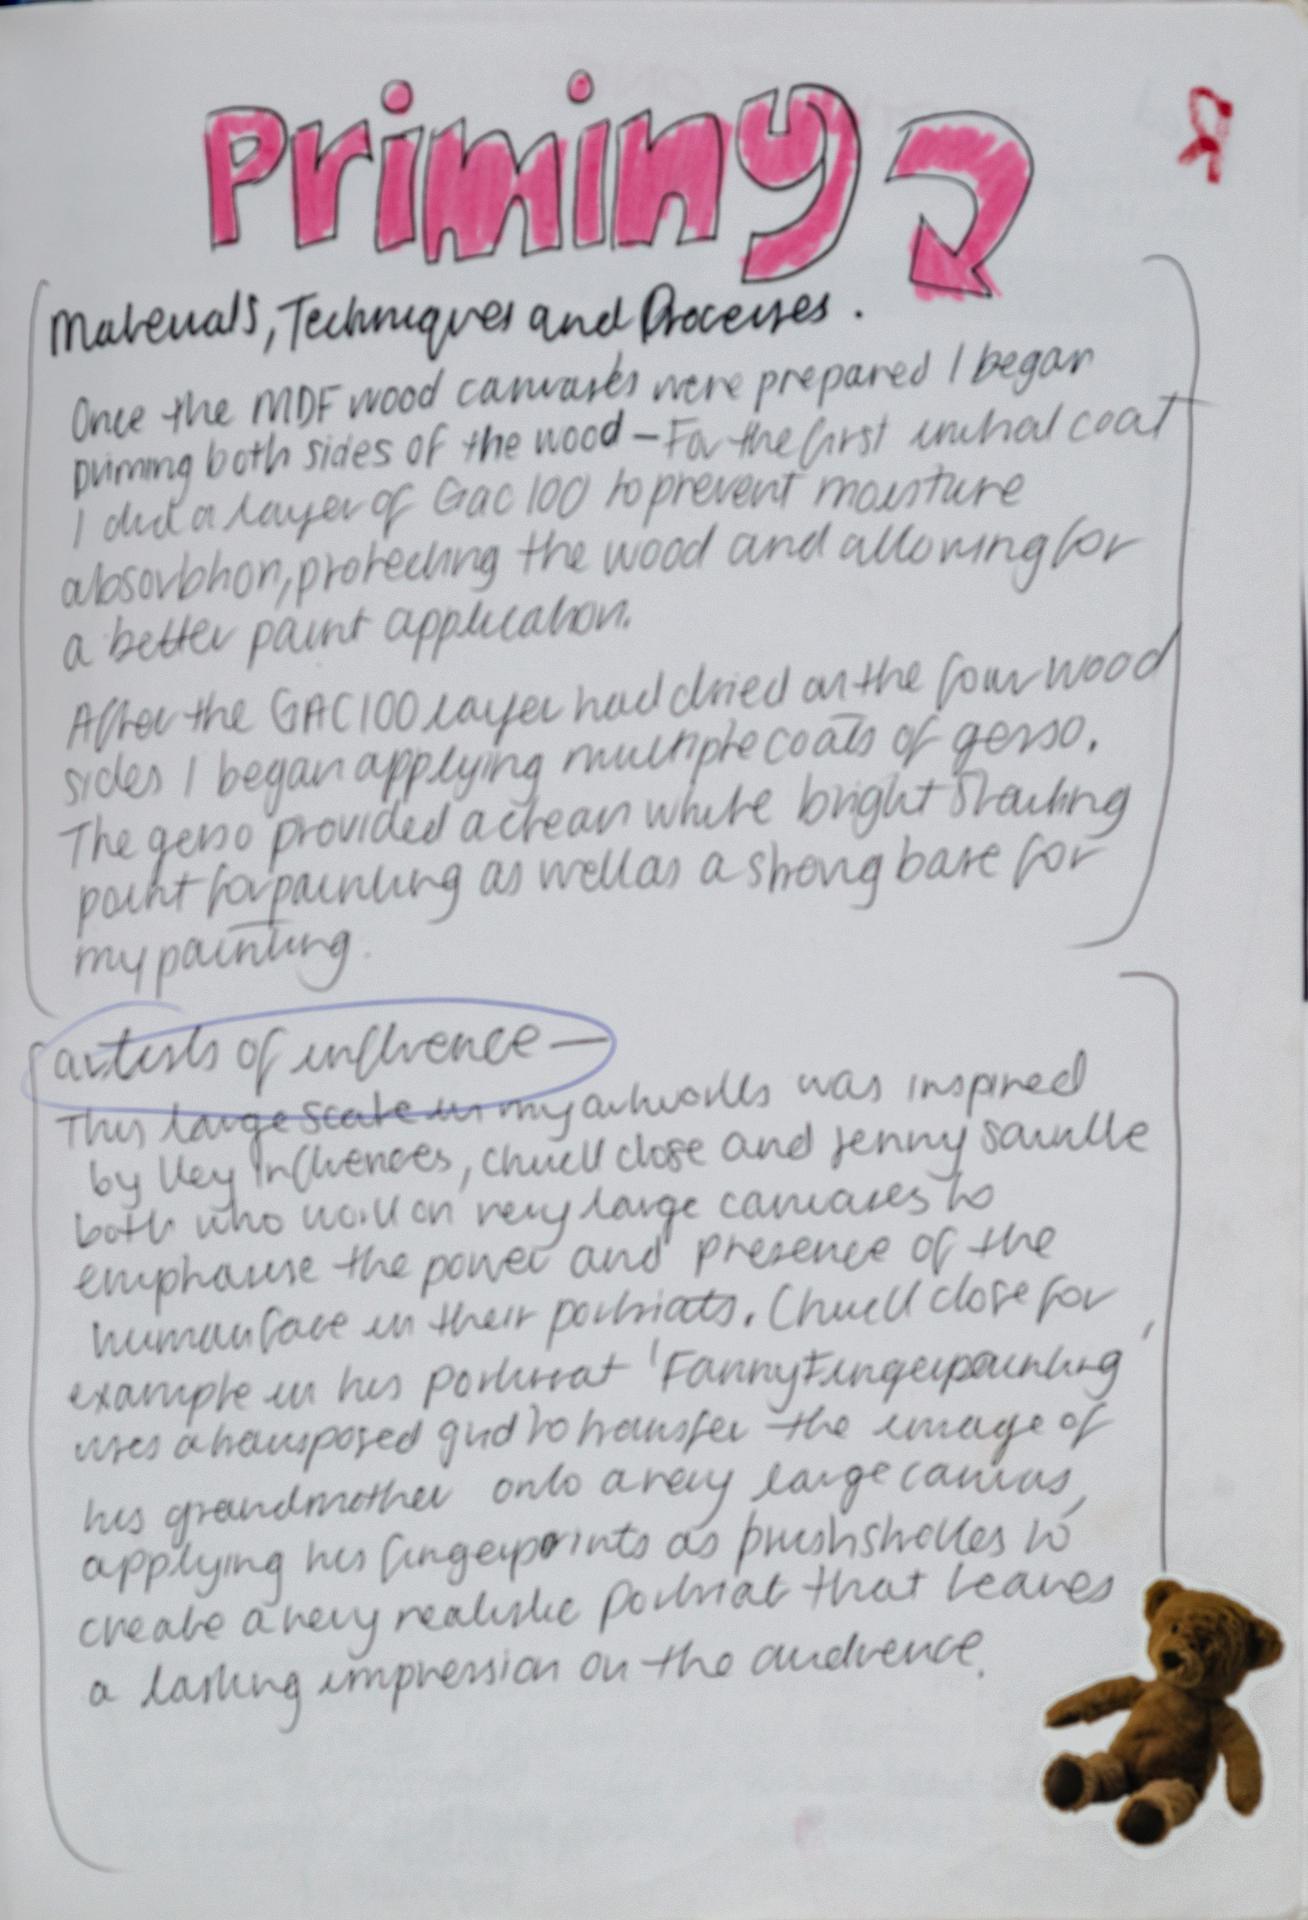 Priming
Materials, Techniques and Processes.
Once the MDF wood canvases were prepared I began
priming both sides of the wood – For the first initial coat
I did a layer of Gac 100 to prevent moisture
absorbtion, protecting the wood and allowing for
a better paint application.
After the GAC 100 layer had dried on the four wood
sides I began applying multiple coats of gesso.
The gesso provided a clean white bright starting
point for painting as well as a strong base for
my painting.
artists of influence —
This large scale in my artworks was inspired
by key influences, chuck close and Jenny Saville
both who work on very large canvases to
emphasise the power and presence of the
human face in their portriats. Chuck close for
example in his portriat 'Fanny Fingerpainting'
uses a transposed grid to transfer the image of
his grandmother onto a very large canvas,
applying his fingerprints as brushstrokes to
create a very realistic portriat that leaves
a lasting impression on the audience.